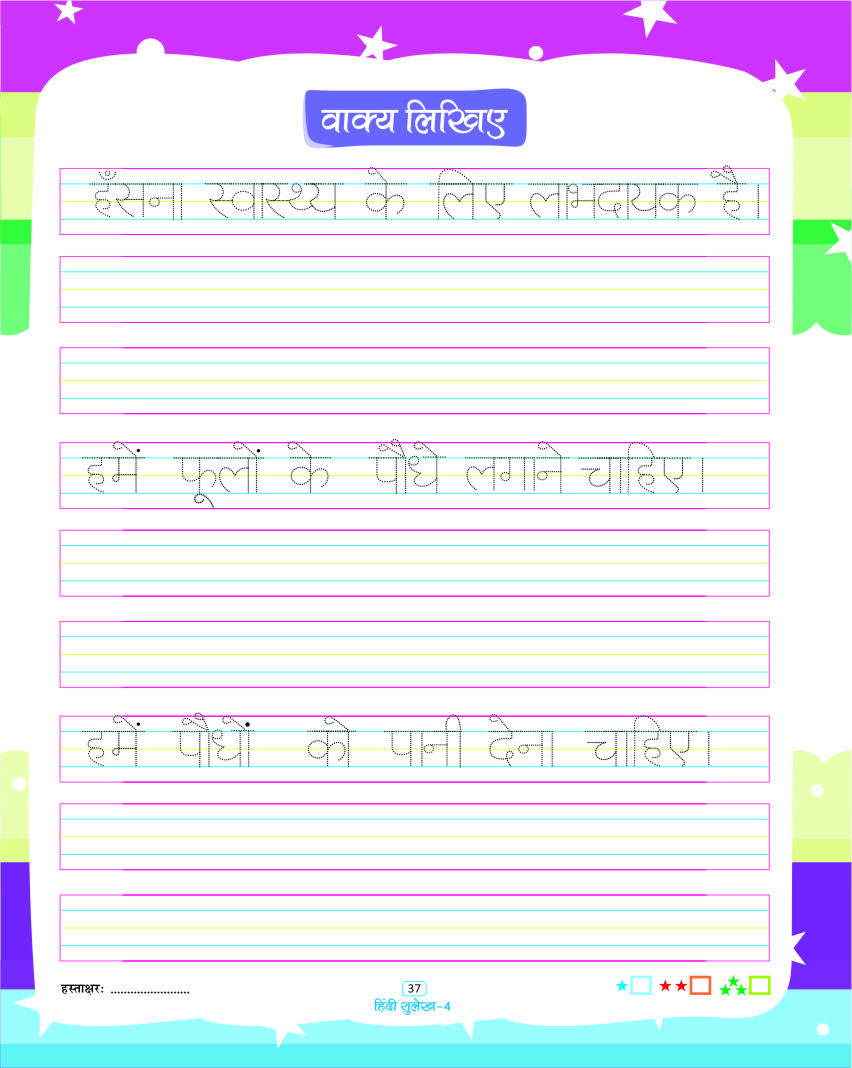 वाक्य लिखिए
हँसना स्वास्थ्य के लिए लाभदायक है।
हमें फूलों के पौधे लगाने चाहिए।
हमें पौधों को पानी देना चाहिए।
हस्ताक्षरः ........................
37
हिंदी सुलेख-4